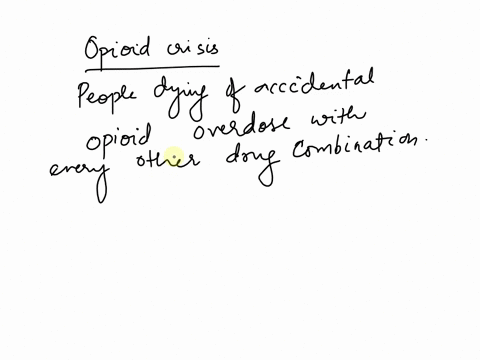 Opioid crisis
People dying of accidental
opioid overdose with
every other drug combination.